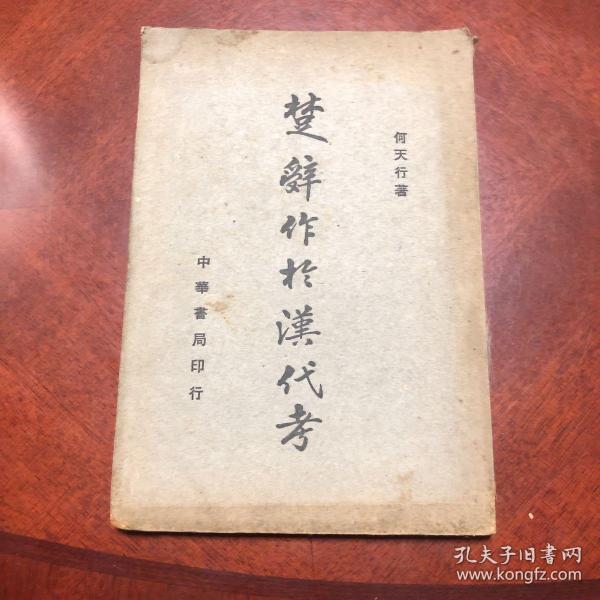 何天行著
楚辭作於漢代考
中華書局印行
孔夫子旧書网
www.kongfz.com